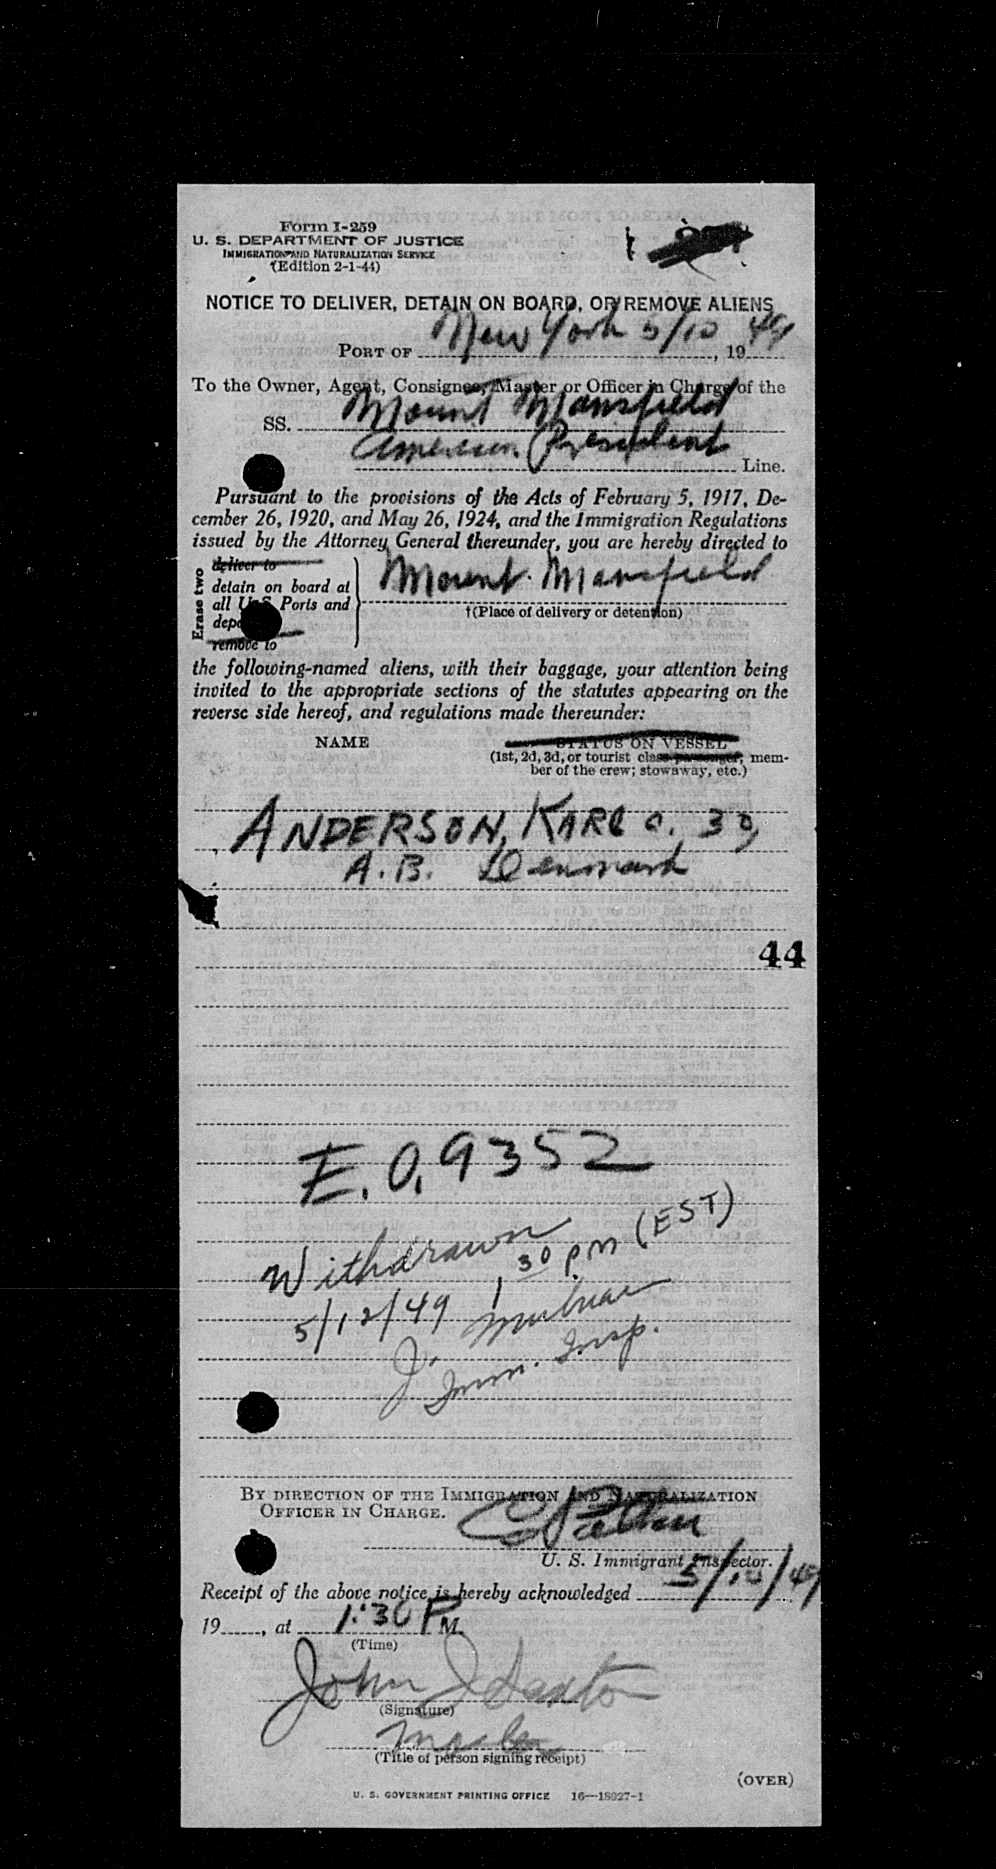 Form I-259
U. S. DEPARTMENT OF JUSTICE
IMMIGRATION AND NATURALIZATION SERVICE
(Edition 2-1-44)
NOTICE TO DELIVER, DETAIN ON BOARD, OR REMOVE ALIENS
PORT OF New York 5/10, 1949
To the Owner, Agent, Consignee, Master or Officer in Charge of the
SS. Mount Mansfield
American President Line.
Pursuant to the provisions of the Acts of February 5, 1917, De-
cember 26, 1920, and May 26, 1924, and the Immigration Regulations
issued by the Attorney General thereunder, you are hereby directed to
Erase two
deliver to
detain on board at
all U. S. Ports and
remove to
Mount Mansfield
†(Place of delivery or detention)
the following-named aliens, with their baggage, your attention being
invited to the appropriate sections of the statutes appearing on the
reverse side hereof, and regulations made thereunder:
NAME
STATUS ON VESSEL
(1st, 2d, 3d, or tourist class passenger; mem-
ber of the crew; stowaway, etc.)
ANDERSON, KARL O. 30,
A.B. Denmark
44
E.O. 9352
Withdrawn
5/12/49 1 30 pm (EST)
J.
Imm. Insp.
BY DIRECTION OF THE IMMIGRATION AND NATURALIZATION
OFFICER IN CHARGE.
U. S. Immigrant Inspector.
Receipt of the above notice is hereby acknowledged 5/10/49
19____, at 1:30 P M.
(Time)
John J
(Signature)
(Title of person signing receipt)
(OVER)
U. S. GOVERNMENT PRINTING OFFICE 16—18927-1